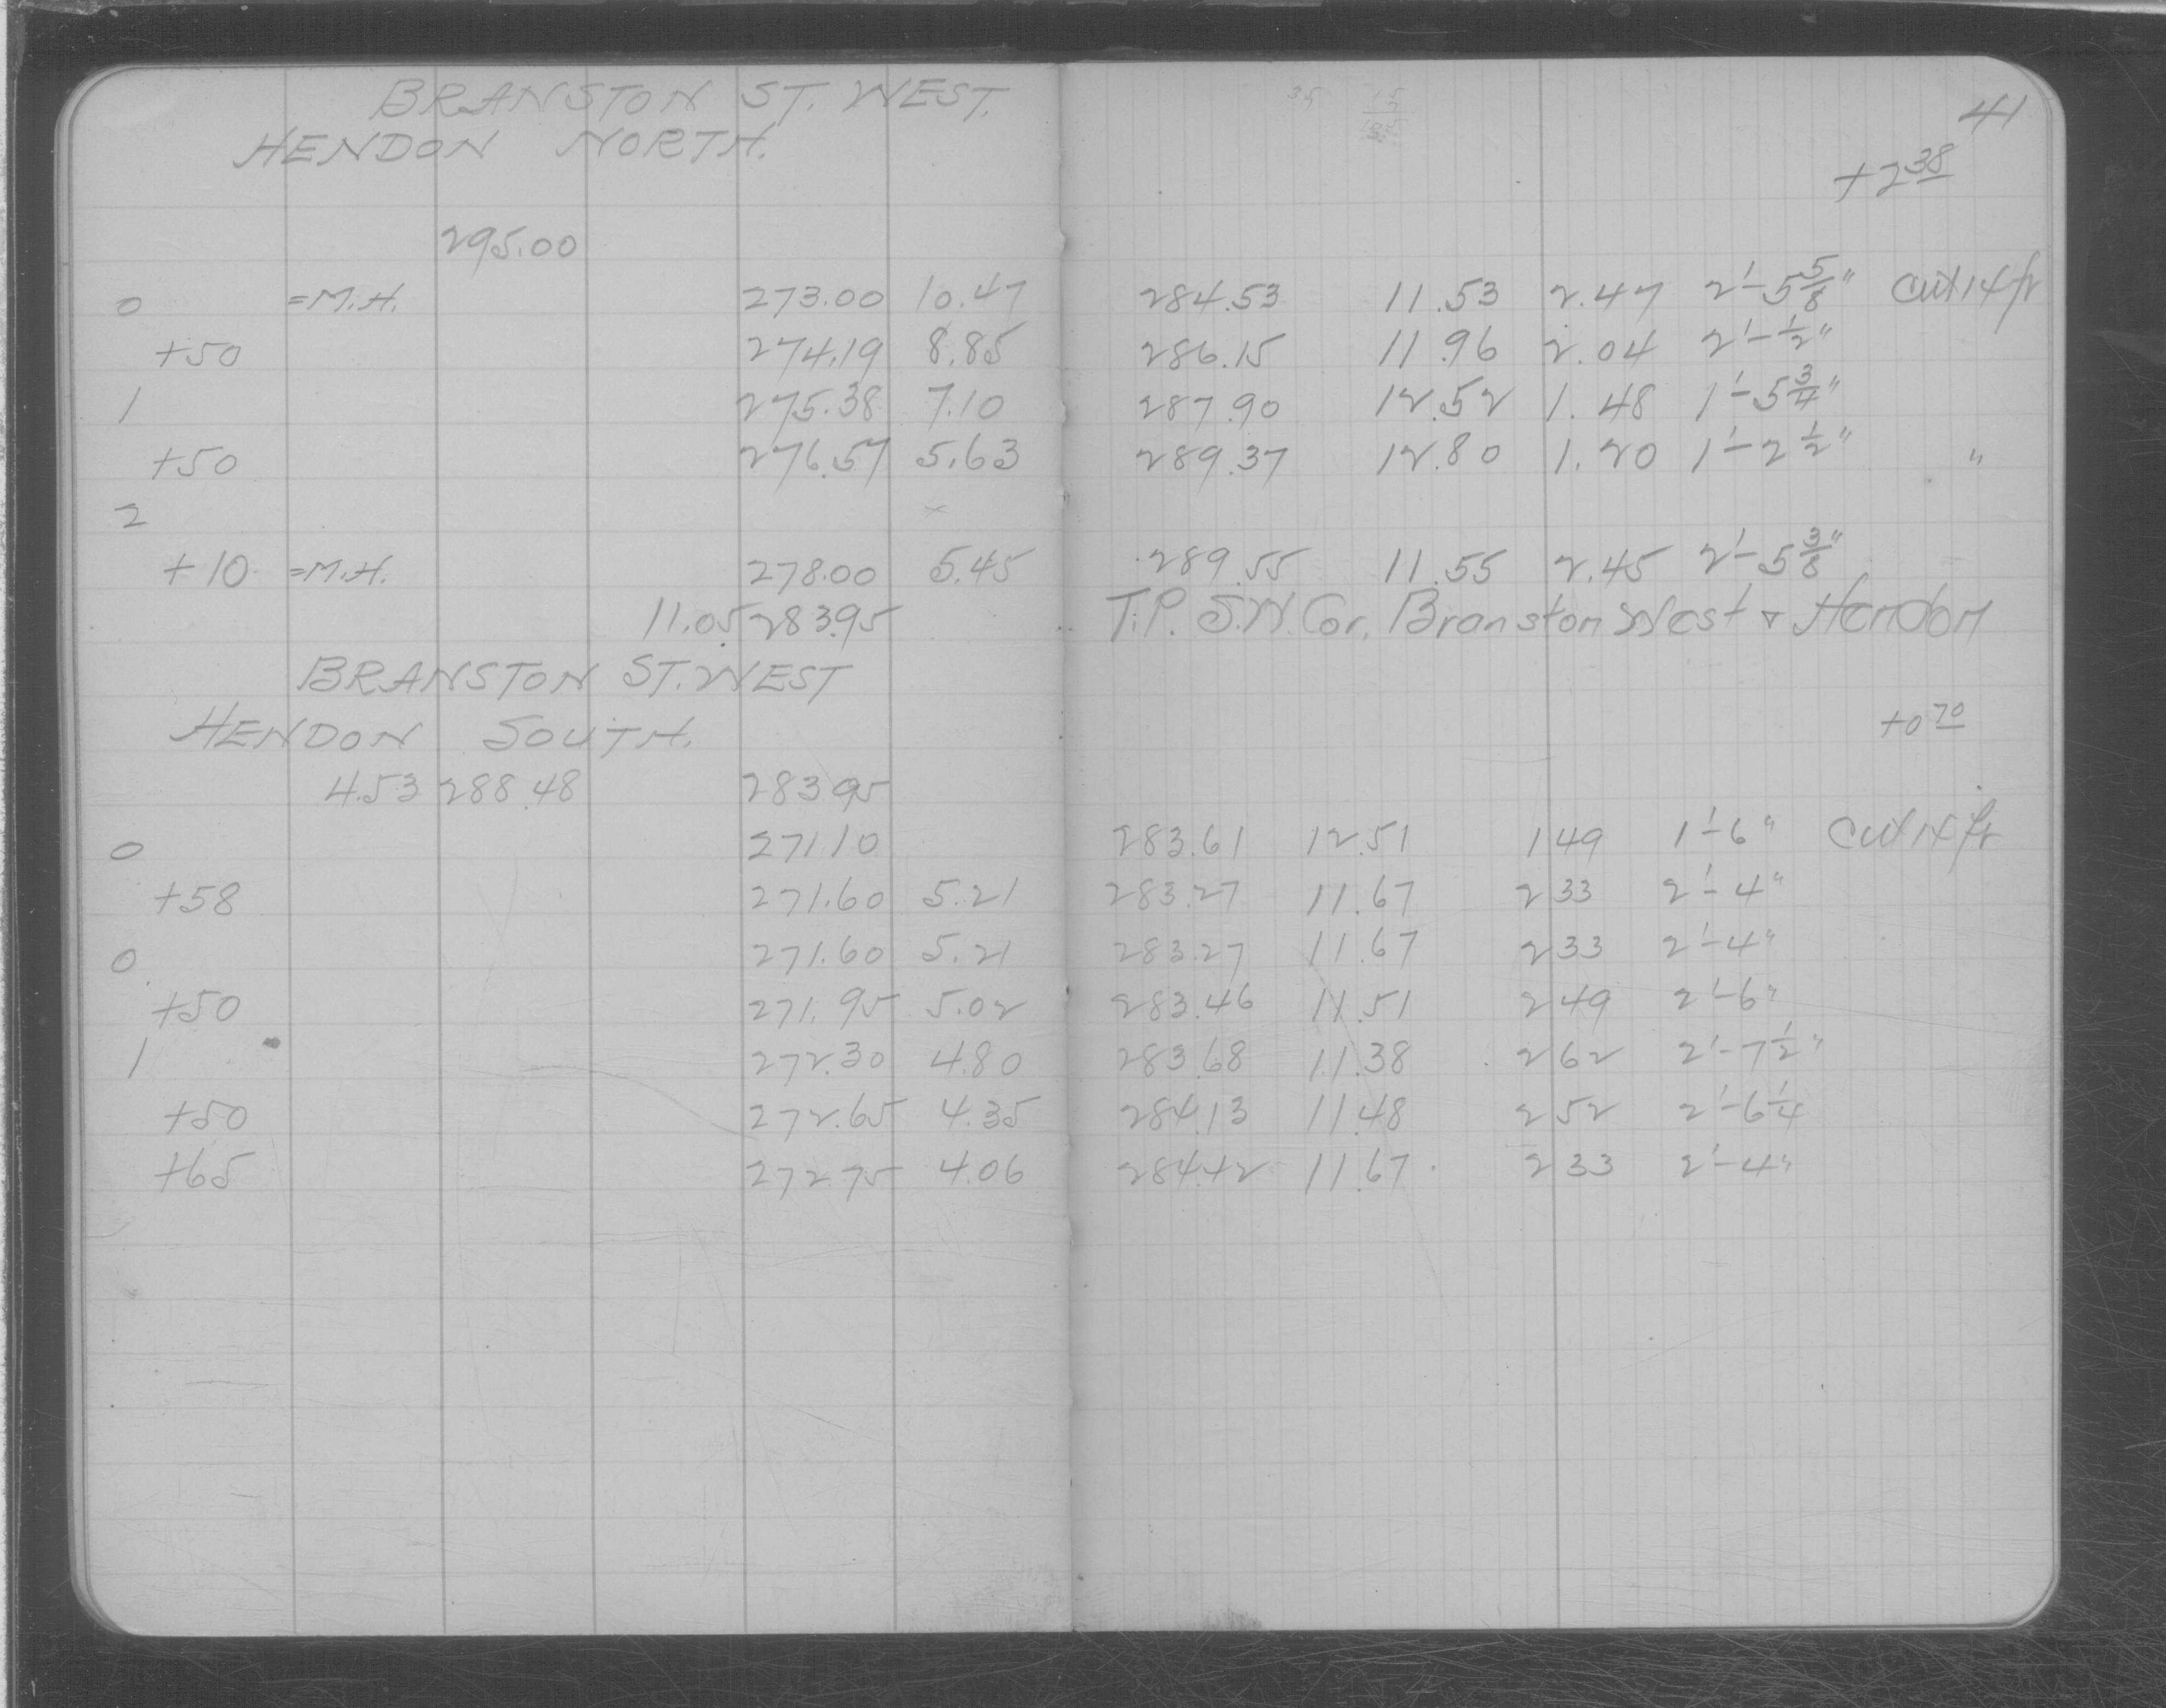 BRANSTON ST. WEST. 41
HENDON NORTH. +2 38
295.00
0 =M.H. 273.00 10.47 284.53 11.53 2.47 2'-5 5/8" Cut 14 ft
+50 274.19 8.85 286.15 11.96 2.04 2'-1/2"
1 275.38 7.10 287.90 12.52 1.48 1'-5 3/4"
+50 276.57 5.63 289.37 12.80 1.20 1'-2 1/2" "
2 x
+10 =M.H. 278.00 5.45 289.55 11.55 2.45 2'-5 3/8"
11.05 283.95 T.P. S.W. Cor. Branston West & Hendon
BRANSTON ST. WEST
HENDON SOUTH. +0 70
4.53 288.48 283.95
0 271.10 283.61 12.51 149 1'-6" Cut 14 ft
+58 271.60 5.21 283.27 11.67 233 2'-4"
0 271.60 5.21 283.27 11.67 233 2'-4"
+50 271.95 5.02 283.46 11.51 249 2'-6"
1 272.30 4.80 283.68 11.38 262 2'-7 1/2"
+50 272.65 4.35 284.13 11.48 252 2'-6 1/4
+65 272.75 4.06 284.42 11.67 233 2'-4"